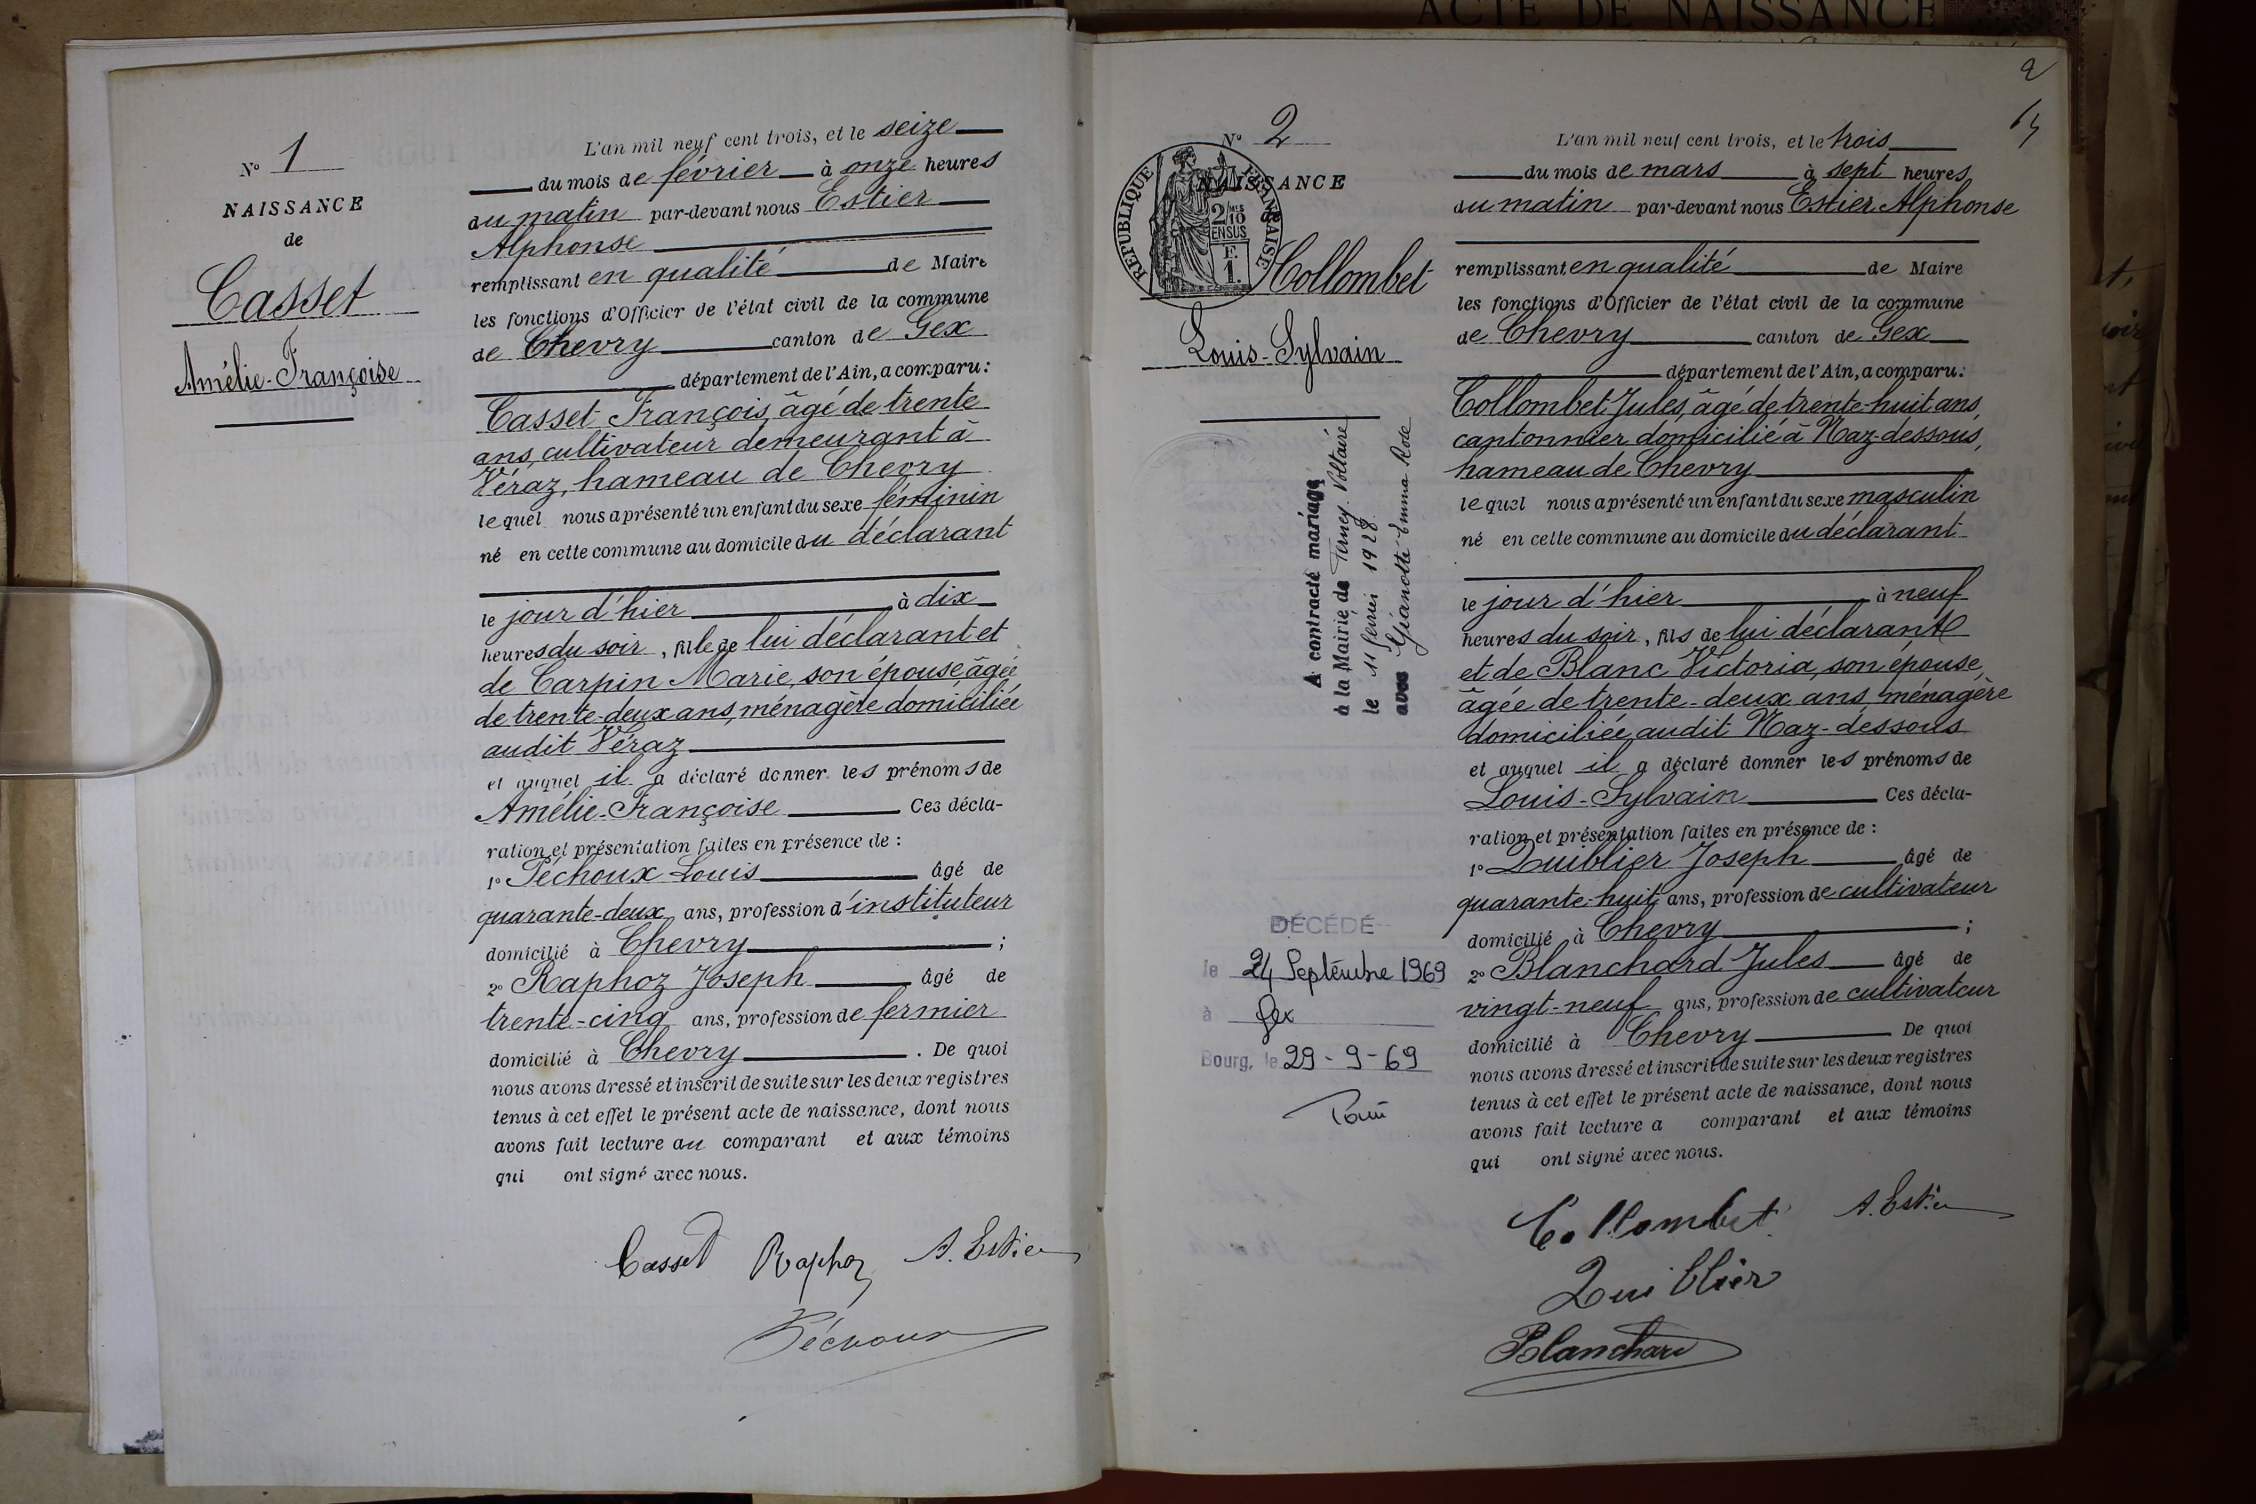 ACTE DE NAISSANCE
N° 1
NAISSANCE
de
Casset
Amélie-Françoise
L'an mil neuf cent trois, et le seize
du mois de février à onze heures
du matin par-devant nous Estier
Alphonse
remplissant en qualité de Maire
les fonctions d'Officier de l'état civil de la commune
de Chevry canton de Gex
département de l'Ain, a comparu:
Casset François, âgé de trente
ans, cultivateur demeurant à
Véraz, hameau de Chevry
lequel nous a présenté un enfant du sexe féminin
né en cette commune au domicile du déclarant
le jour d'hier à dix
heures du soir, fille de lui déclarant et
de Carpin Marie, son épouse âgée
de trente-deux ans, ménagère domiciliée
audit Véraz
et auquel il a déclaré donner les prénoms de
Amélie-Françoise Ces décla-
ration et présentation faites en présence de :
1° Péchoux Louis âgé de
quarante-deux ans, profession d'instituteur
domicilié à Chevry ;
2° Raphoz Joseph âgé de
trente-cinq ans, profession de fermier
domicilié à Chevry . De quoi
nous avons dressé et inscrit de suite sur les deux registres
tenus à cet effet le présent acte de naissance, dont nous
avons fait lecture au comparant et aux témoins
qui ont signé avec nous.
Casset Raphoz A. Estier
Péchoux
2
N° 2
NAISSANCE
de
REPUBLIQUE FRANÇAISE
2/10
EN SUS
F.
1.
Collombet
Louis-Sylvain
A contracté mariage
à la Mairie de Ferney-Voltaire
le 11 février 1928
avec Gianotte Emma Rose
DÉCÉDÉ
le 24 Septembre 1969
à Gex
Bourg, le 29-9-69
L'an mil neuf cent trois, et le trois
du mois de mars à sept heures
du matin par-devant nous Estier Alphonse
remplissant en qualité de Maire
les fonctions d'Officier de l'état civil de la commune
de Chevry canton de Gex
département de l'Ain, a comparu:
Collombet Jules, âgé de trente-huit ans,
cantonnier domicilié à Naz-dessous,
hameau de Chevry
lequel nous a présenté un enfant du sexe masculin
né en cette commune au domicile du déclarant
le jour d'hier à neuf
heures du soir, fils de lui déclarant
et de Blanc Victoria, son épouse,
âgée de trente-deux ans, ménagère
domiciliée audit Naz-dessous
et auquel il a déclaré donner les prénoms de
Louis-Sylvain Ces décla-
ration et présentation faites en présence de :
1° Quiblier Joseph âgé de
quarante-huit ans, profession de cultivateur
domicilié à Chevry ;
2° Blanchard Jules âgé de
vingt-neuf ans, profession de cultivateur
domicilié à Chevry De quoi
nous avons dressé et inscrit de suite sur les deux registres
tenus à cet effet le présent acte de naissance, dont nous
avons fait lecture a comparant et aux témoins
qui ont signé avec nous.
Collombet A. Estier
Quiblier
Blanchard